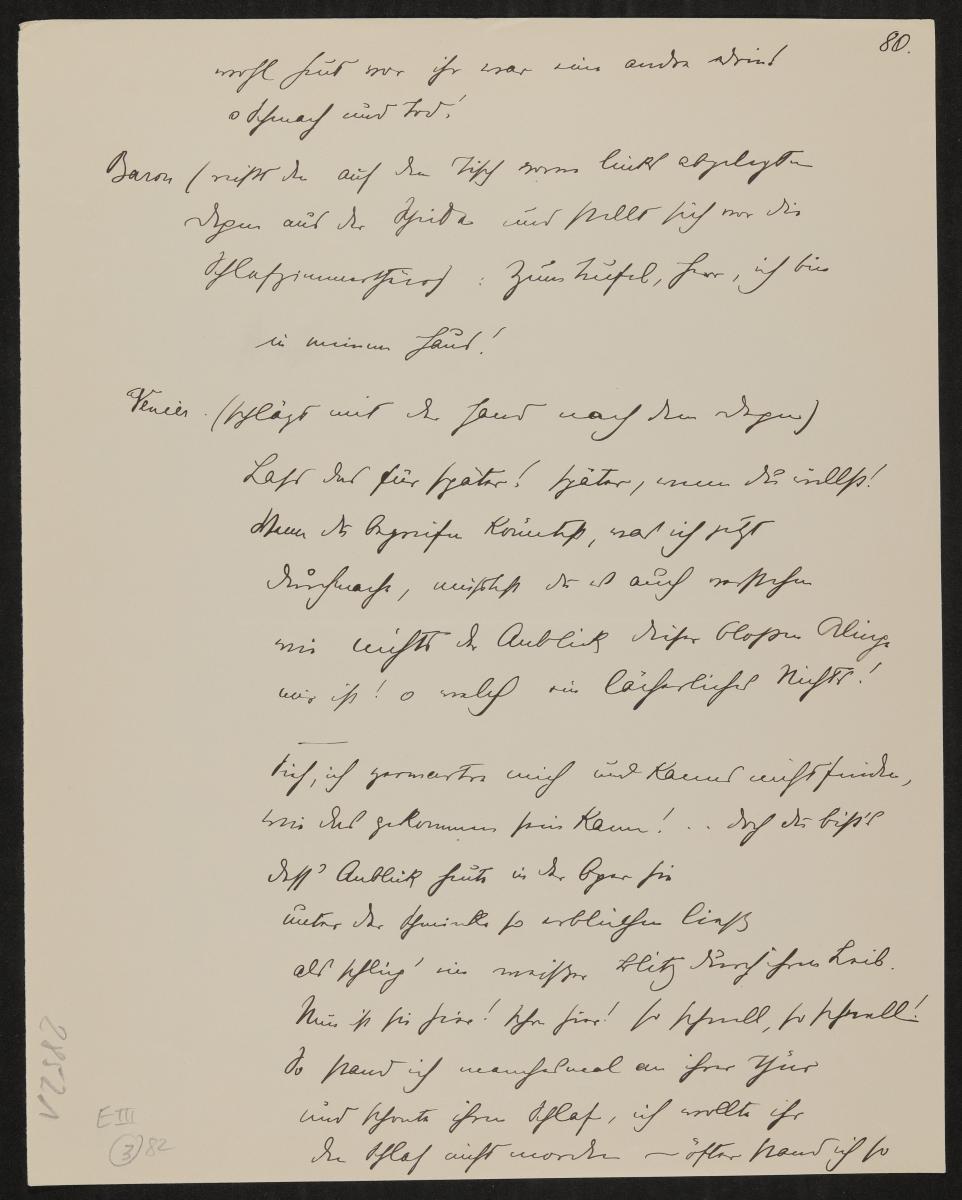 80.
wohl heut vor ihr war eine andre
o Schmach und Tod!
Baron (reißt den auf dem Tisch vorne links abgelegten
Degen aus der Scheide und stellt sich vor die
Schlafzimmerthüre) : Zum Teufel, Herr, ich bin
in meinem Haus!
Venier. (schlägt mit der Hand nach dem Degen)
Lass das für später! später, wenn du willst!
Wenn du begreifen könntest, was ich jetzt
durchmache, müsstest du es auch verstehen
wie nichts der Anblick dieser bloßen Klinge
mir ist! o welch ein lächerliches Nichts!
Sieh, ich zermartre mich und kanns nicht finden,
wie das gekommen sein kann! .. doch du bist's
dess' Anblick heute in der Oper sie
unter der Schminke so erbleichen ließ
als schlüg' ein weißer Blitz durch ihren Leib.
Nun ist sie hier! Ihr hier! so schnell, so schnell!
So stand ich manchesmal an ihrer Thür
und schonte ihren Schlaf, ich wollte ihr
den Schlaf nicht morden – öfter stand ich so
28521
E III
3 82